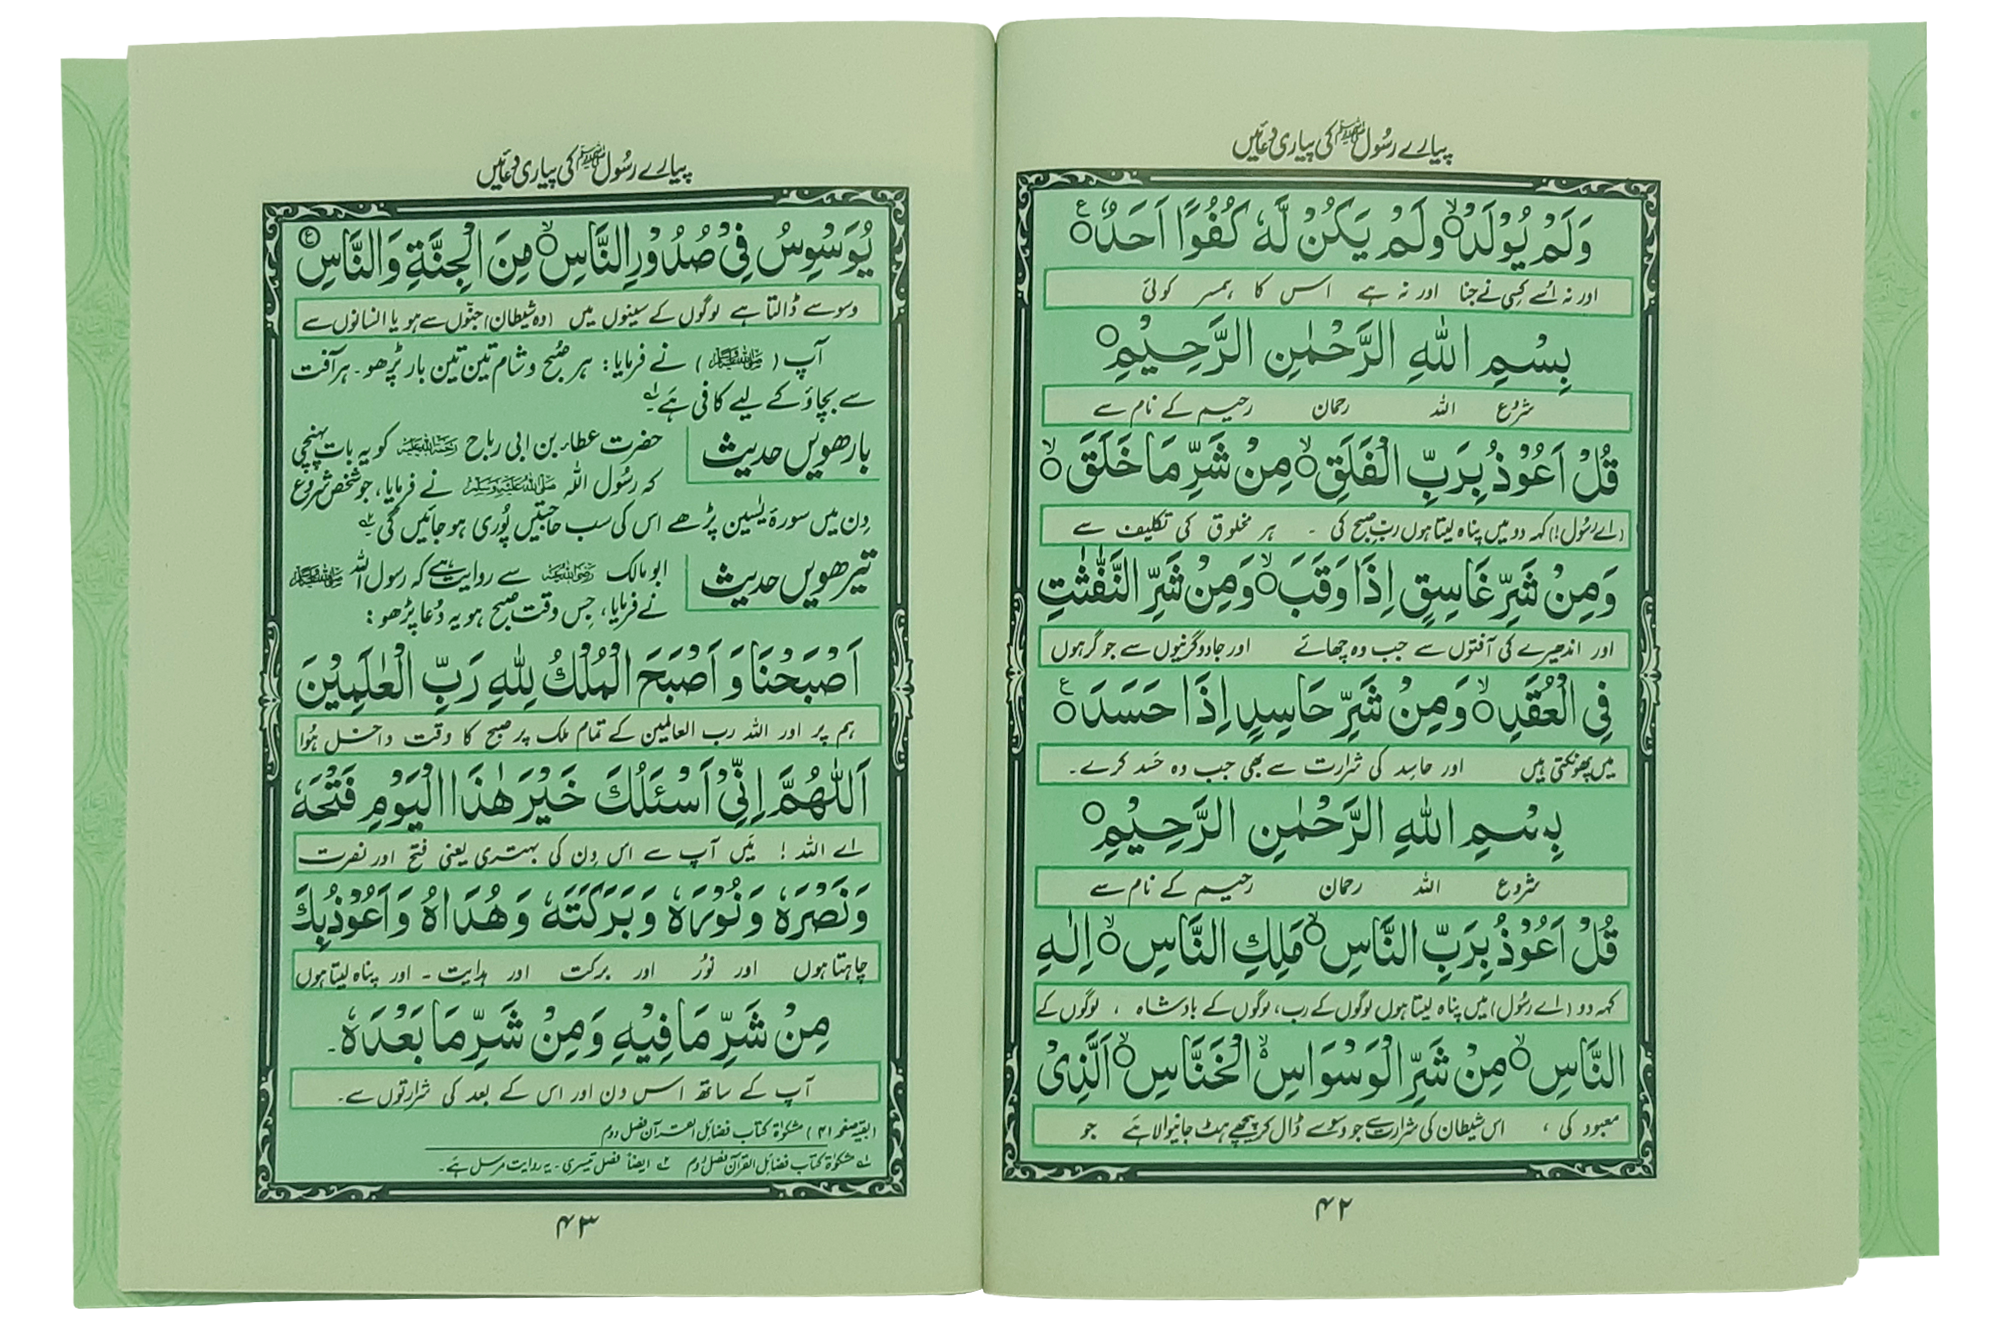 پیارے رسُول ﷺ کی پیاری دعائیں
وَلَمْ يُوْلَدْ ۙ وَلَمْ يَكُنْ لَّهٗ كُفُوًا اَحَدٌ ۧ
اور نہ اُسے کِسی نے جنا اور نہ ہے اس کا ہمسر کوئی
بِسْمِ اللّٰهِ الرَّحْمٰنِ الرَّحِيْمِ ○
شروع اللہ رحمان رحیم کے نام سے
قُلْ اَعُوْذُ بِرَبِّ الْفَلَقِ ۙ مِنْ شَرِّ مَا خَلَقَ ۙ
(اے رسُول!) کہہ دو میں پناہ لیتا ہوں ربّ صبح کی ۔ ہر مخلوق کی تکلیف سے
وَمِنْ شَرِّ غَاسِقٍ اِذَا وَقَبَ ۙ وَمِنْ شَرِّ النَّفّٰثٰتِ
اور اندھیرے کی آفتوں سے جب وہ چھائے اور جادوگرنیوں سے جو گرہوں
فِي الْعُقَدِ ۙ وَمِنْ شَرِّ حَاسِدٍ اِذَا حَسَدَ ۧ
میں پھونکتی ہیں اور حاسِد کی شرارت سے بھی جب وہ حَسد کرے۔
بِسْمِ اللّٰهِ الرَّحْمٰنِ الرَّحِيْمِ ○
شروع اللہ رحمان رحیم کے نام سے
قُلْ اَعُوْذُ بِرَبِّ النَّاسِ ۙ مَلِكِ النَّاسِ ۙ اِلٰهِ
کہہ دو (اے رسُول) میں پناہ لیتا ہوں لوگوں کے رب، لوگوں کے بادشاہ ، لوگوں کے
النَّاسِ ۙ مِنْ شَرِّ الْوَسْوَاسِ ۙ الْخَنَّاسِ ۙ الَّذِيْ
معبود کی ، اس شیطان کی شرارت سے جو وسوسے ڈال کر پیچھے ہٹ جانیوالا ہے جو
۴۲
پیارے رسُول ﷺ کی پیاری دعائیں
يُوَسْوِسُ فِيْ صُدُوْرِ النَّاسِ ۙ مِنَ الْجِنَّةِ وَالنَّاسِ ۧ
وسوسے ڈالتا ہے لوگوں کے سینوں میں (وہ شیطان) جنّوں سے ہو یا انسانوں سے
آپ (ﷺ) نے فرمایا: ہر صُبح و شام تین تین بار پڑھو۔ ہر آفت
سے بچاؤ کے لیے کافی ہَے۔ لہ
بارھویں حدیث حضرت عطاء بن ابی رباح رحمۃ اللہ علیہ کو یہ بات پہنچی
کہ رسُول اللہ صلی اللہ علیہ وسلم نے فرمایا، جو شخص شروع
دِن میں سورۂ یٰسین پڑھے اس کی سب حاجتیں پُوری ہو جائیں گی۔ ٢ہ
تیرھویں حدیث ابو مالک رضی اللہ عنہ سے روایت ہے کہ رسول اللہ ﷺ
نے فرمایا، جِس وقت صبح ہو یہ دُعا پڑھو:
اَصْبَحْنَا وَ اَصْبَحَ الْمُلْكُ لِلّٰهِ رَبِّ الْعٰلَمِيْنَ
ہم پر اور اللہ رب العالمین کے تمام ملک پر صبح کا وقت داخل ہُوا
اَللّٰهُمَّ اِنِّيْ اَسْئَلُكَ خَيْرَ هٰذَا الْيَوْمِ فَتْحَهٗ
اے اللہ ! میَں آپ سے اس دِن کی بہتری یعنی فتح اور نصرت
وَنَصْرَهٗ وَنُوْرَهٗ وَبَرَكَتَهٗ وَهُدَاهُ وَاَعُوْذُ بِكَ
چاہتا ہوں اور نوُر اور برکت اور ہدایت ۔ اور پناہ لیتا ہوں
مِنْ شَرِّ مَا فِيْهِ وَمِنْ شَرِّ مَا بَعْدَهٗ۔
آپ کے ساتھ اس دن اور اس کے بعد کی شرارتوں سے۔
(بقیہ صفحہ ۴۱) مشکوٰۃ کتاب فضائل القرآن فصل دوم
لہ مشکوٰۃ کتاب فضائل القرآن فصل دوم ٢ہ ایضاً فصل تیسری۔ یہ روایت مرسل ہَے۔
۴۳